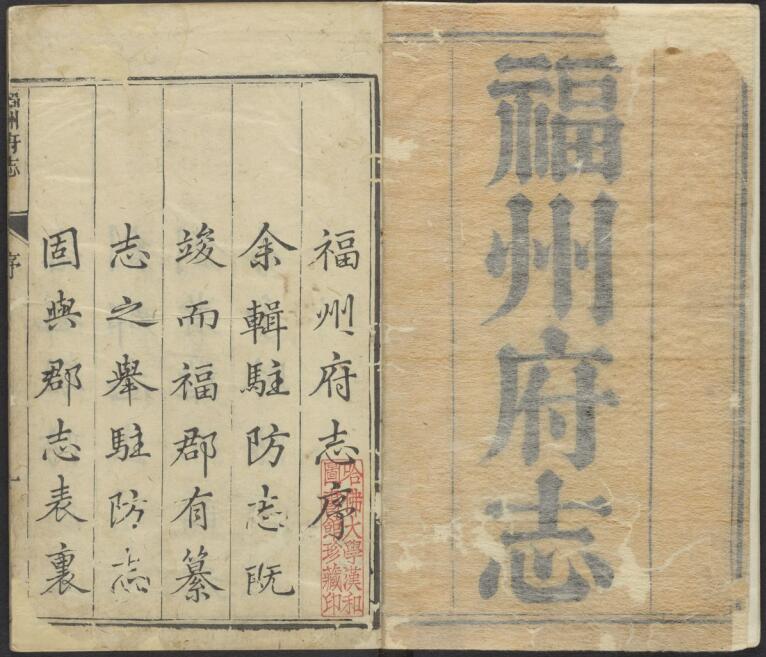 福州府志
福州府志序
余輯駐防志既
竣而福郡有纂
志之舉駐防志
固與郡志表裏
哈佛大學漢和
圖書館珍藏印
福州府志
序
一